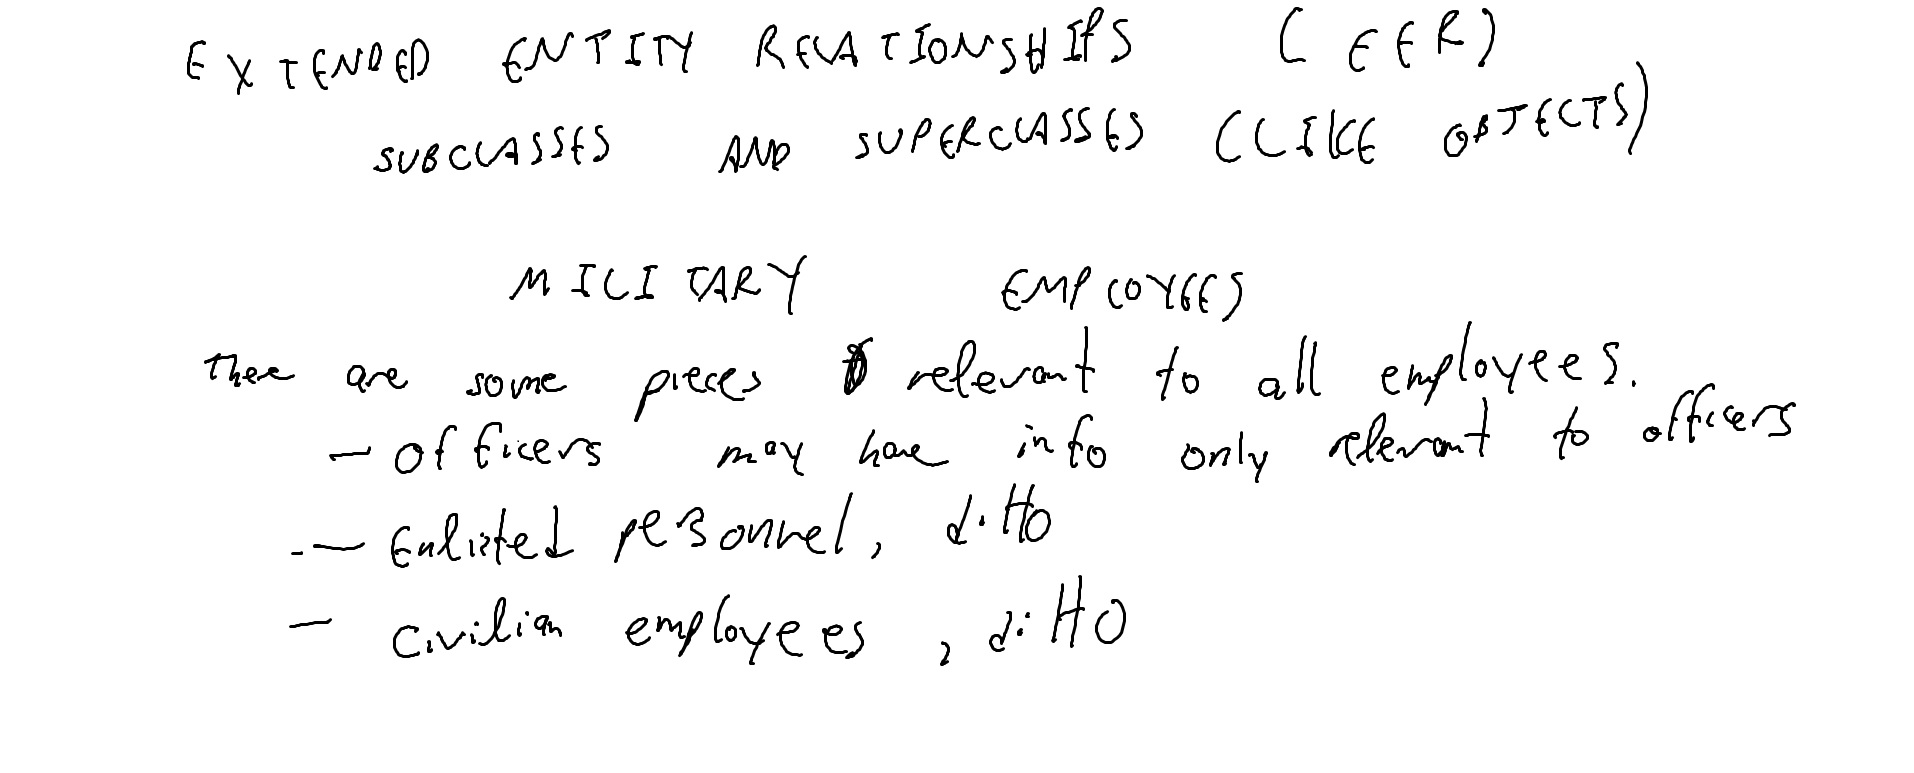 EXTENDED ENTITY RELATIONSHIPS (EER)
SUBCLASSES AND SUPERCLASSES (LIKE OBJECTS)
MILITARY EMPLOYEES
There are some pieces relevant to all employees.
- Officers may have info only relevant to officers
- Enlisted personnel, ditto
- civilian employees, ditto